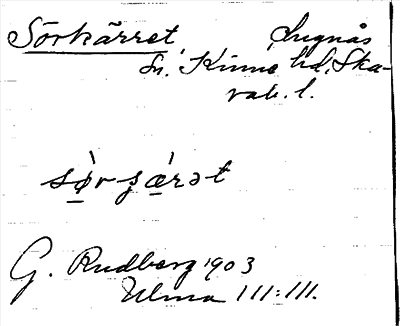 Sörkärret Lugnås
Sn. Kinne hd. Ska-
rab. l.
sø̀r ʂæ̀rət
G. Rudberg 1903
Ulma 111:111.